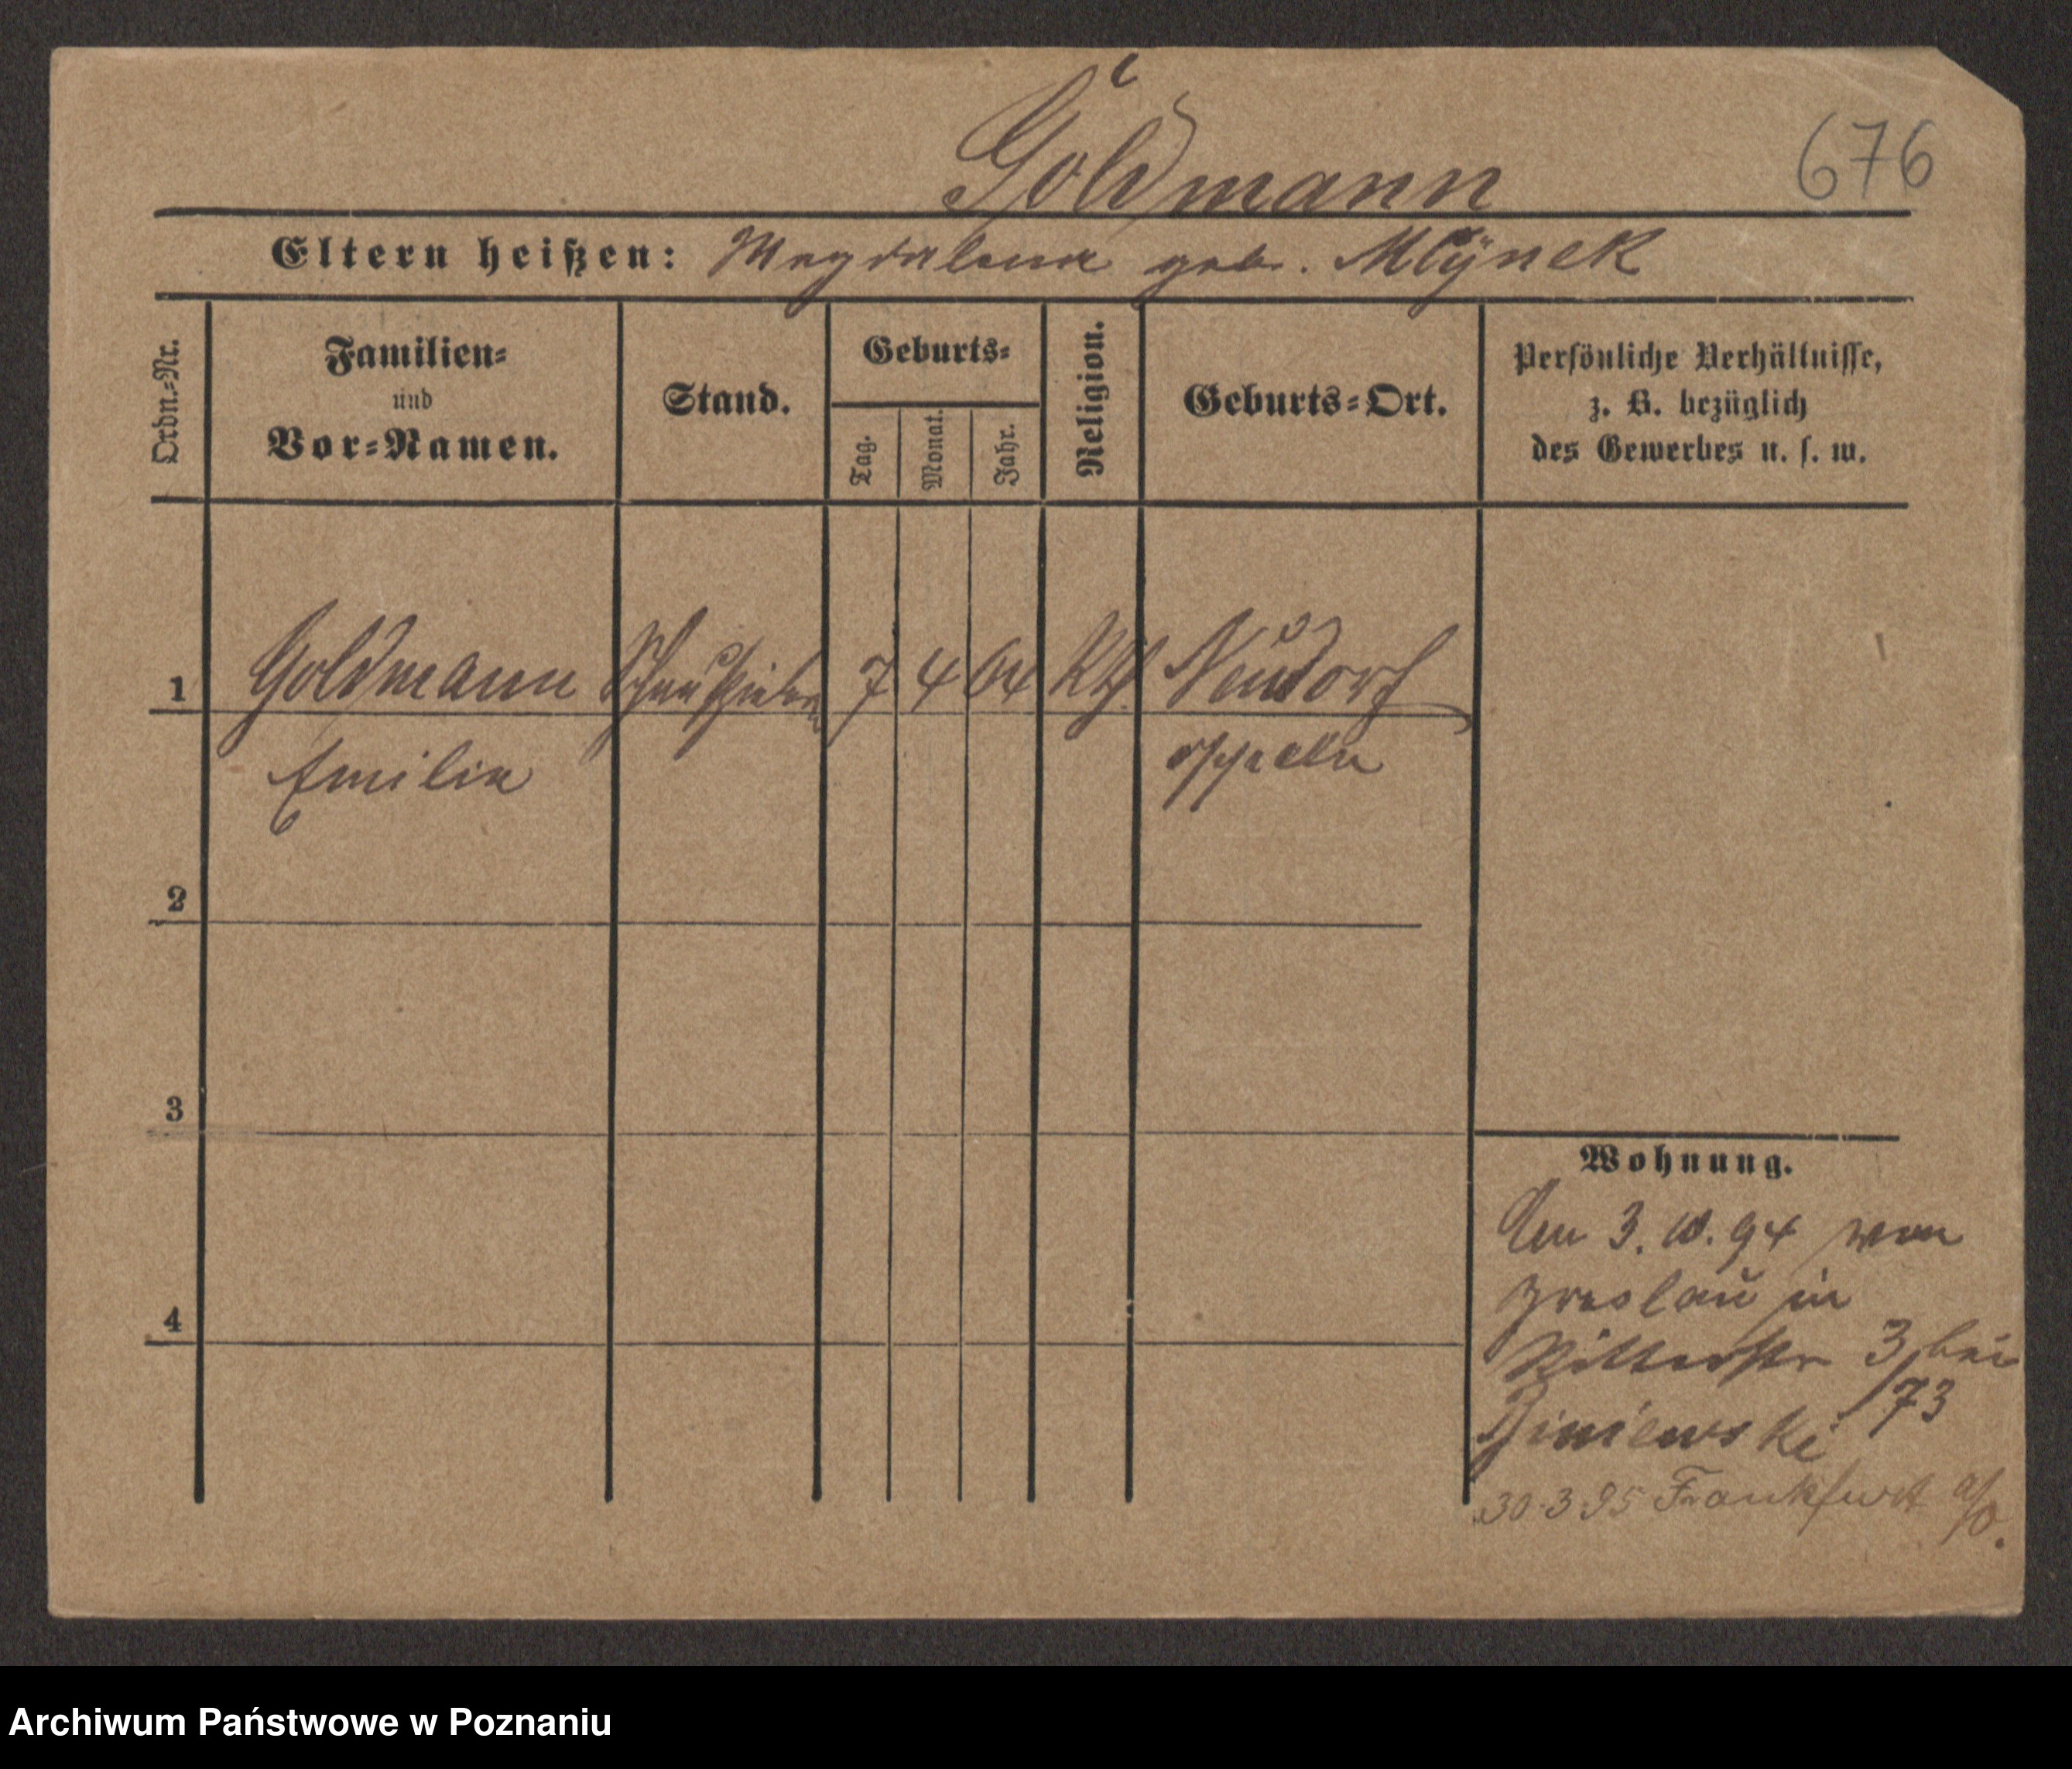 Goldmann
676
Eltern heißen: Magdalena geb. Mlÿnek
Ordn.-Nr.
Familien-
und
Vor-Namen.
Stand.
Geburts-
Tag.
Monat.
Jahr.
Religion.
Geburts-Ort.
Persönliche Verhältnisse,
z. B. bezüglich
des Gewerbes u. s. w.
1 Goldmann Schauspielerin 7 4 64 Kth. Neudorf
Emilie Oppeln
2
3
4
Wohnung.
Am 3. 10. 94 von
Breslau in
Ritterstr 3 bei
73
30.3.95 Frankfurt a/O.
Archiwum Państwowe w Poznaniu